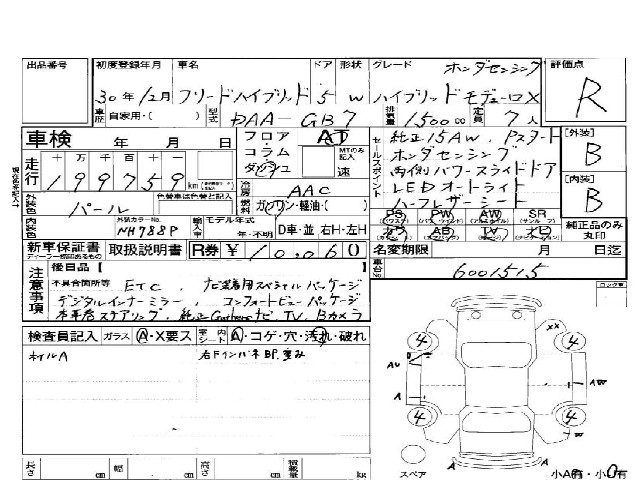 出品番号 初度登録年月 車名 ドア 形状 グレード ホンダセンシング 評価点
30年12月 フリードハイブリッド 5 W ハイブリッドモデューロX R
車歴 自家用・( ) 型式 DAA-GB7 排気量 1500 cc 定員 7人
車検 年 月 日 フロア・コラム・ダッシュ AT MTのみ記入 速
セールスポイント 純正15AW、Pスタート
ホンダセンシング
両側パワースライドドア
LEDオートライト
ハーフレザーシート
[外装] B
[内装] B
走行 十 万 千 百 十 一
199759 km
現在色を記入↑
冷房 AAC
外装色 パール 色替車は色替と記入
燃料 ガソリン・軽油・( )
内装色 外装カラーNo. NH788P 輸入車 モデル年式 年・不明 D車・並 右H・左H
PS PW AW SR
カワ AB TV ナビ
純正品のみ丸印
新車保証書 取扱説明書 R券 ¥10,060
ディーラー捺印あるもの
名変期限 月 日迄
車台No. 6001515
注意事項 後日品【
不具合箇所等 ETC、ナビ装着用スペシャルパッケージ
デジタルインナーミラー、コンフォートビューパッケージ
本革巻ステアリング、純正Gathersナビ、TV、Bカメラ
検査員記入 ガラス A・X要ス 室内シート A・コゲ・穴・汚れ・破れ
ホイルA 右Fインパネ BP、歪み
4 4 XX
AU
A AW
4 4 W
A A
スペア 小A有・小U有
長さ cm 幅 cm 高さ cm 積載量 kg